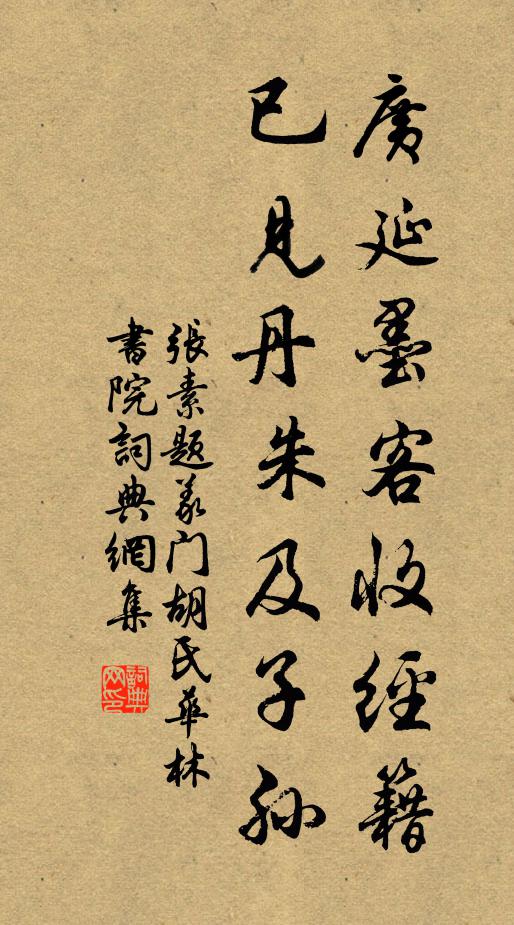 廣延墨客收經籍
已見丹朱及子孫
張素題義门胡氏華林
書院詞典網集
詞典
网印